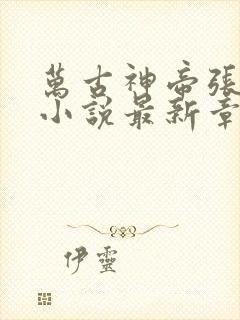 萬古神帝張
小說最新章
伊靈